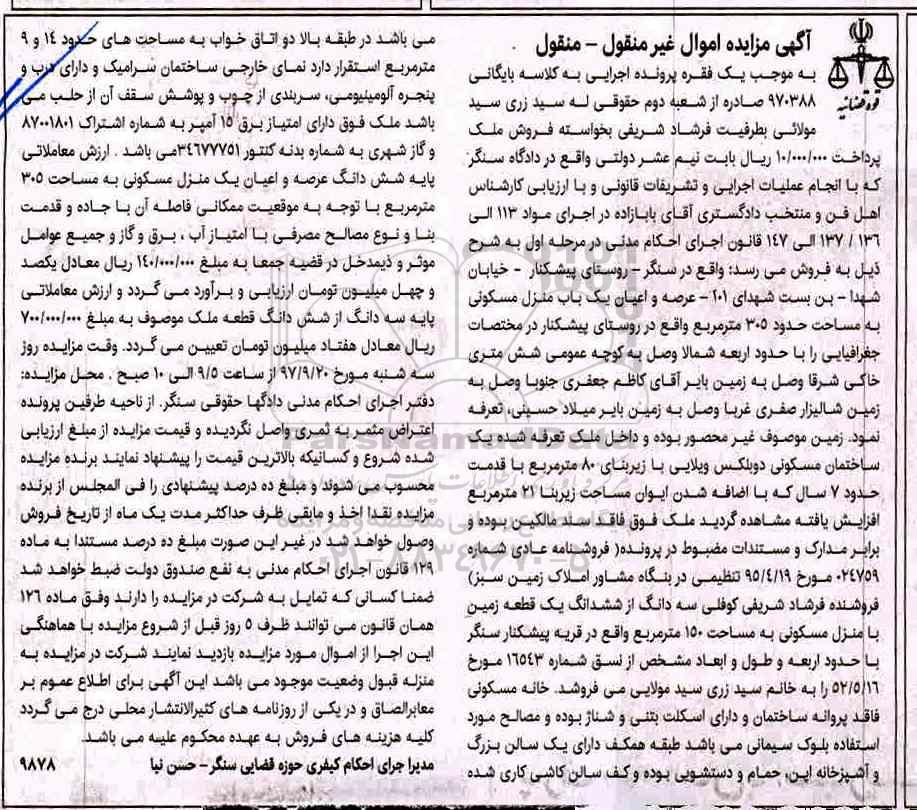 آگهی مزایده اموال غیر منقول - منقول
به موجب یک فقره پرونده اجرایی به کلاسه بایگانی
۹۷۰۳۸۸ صادره از شعبه دوم حقوقی له سید زری سید
مولائی بطرفیت فرشاد شریفی بخواسته فروش ملک
پرداخت ۱۰/۰۰۰/۰۰۰ ریال بابت نیم عشر دولتی واقع در دادگاه سنگر
که با انجام عملیات اجرایی و تشریفات قانونی و با ارزیابی کارشناس
اهل فن و منتخب دادگستری آقای بابازاده در اجرای مواد ۱۱۳ الی
۱۳۶ / ۱۳۷ الی ۱۴۷ قانون اجرای احکام مدنی در مرحله اول به شرح
ذیل به فروش می رسد: واقع در سنگر - روستای پیشکنار - خیابان
شهدا - بن بست شهدای ۱۰۱ - عرصه و اعیان یک باب منزل مسکونی
به مساحت حدود ۳۰۵ مترمربع واقع در روستای پیشکنار در مختصات
جغرافیایی را با حدود اربعه شمالا وصل به کوچه عمومی شش متری
خاکی شرقا وصل به زمین بایر آقای کاظم جعفری جنوبا وصل به
زمین شالیزار صفری غربا وصل به زمین بایر میلاد حسینی، تعرفه
نمود. زمین موصوف غیر محصور بوده و داخل ملک تعرفه شده یک
ساختمان مسکونی دوبلکس ویلایی با زیربنای ۸۰ مترمربع با قدمت
حدود ۷ سال که با اضافه شدن ایوان مساحت زیربنا ۲۱ مترمربع
افزایش یافته مشاهده گردید ملک فوق فاقد سند مالکین بوده و
برابر مدارک و مستندات مضبوط در پرونده( فروشنامه عادی شماره
۰۲۴۷۵۹ مورخ ۹۵/۴/۱۹ تنظیمی در بنگاه مشاور املاک زمین سبز)
فروشنده فرشاد شریفی کوفلی سه دانگ از ششدانگ یک قطعه زمین
با منزل مسکونی به مساحت ۱۵۰ مترمربع واقع در قریه پیشکنار سنگر
با حدود اربعه و طول و ابعاد مشخص از نسق شماره ۱۶۵۴۳ مورخ
۵۲/۵/۱۶ را به خانم سید زری سید مولایی می فروشد. خانه مسکونی
فاقد پروانه ساختمان و دارای اسکلت بتنی و شناژ بوده و مصالح مورد
استفاده بلوک سیمانی می باشد طبقه همکف دارای یک سالن بزرگ
و آشپزخانه اپن، حمام و دستشویی بوده و کف سالن کاشی کاری شده
می باشد در طبقه بالا دو اتاق خواب به مساحت های حدود ۱۴ و ۹
مترمربع استقرار دارد نمای خارجی ساختمان سرامیک و دارای درب و
پنجره آلومینیومی، سربندی از چوب و پوشش سقف آن از حلب می
باشد ملک فوق دارای امتیاز برق ۱۵ آمپر به شماره اشتراک ۸۷۰۰۱۸۰۱
و گاز شهری به شماره بدنه کنتور ۳۴۶۷۷۷۵۱می باشد . ارزش معاملاتی
پایه شش دانگ عرصه و اعیان یک منزل مسکونی به مساحت ۳۰۵
مترمربع با توجه به موقعیت ممکانی فاصله آن با جاده و قدمت
بنا و نوع مصالح مصرفی با امتیاز آب ، برق و گاز و جمیع عوامل
موثر و ذیمدخل در قضیه جمعا به مبلغ ۱۴۰/۰۰۰/۰۰۰ ریال معادل یکصد
و چهل میلیون تومان ارزیابی و برآورد می گردد و ارزش معاملاتی
پایه سه دانگ از شش دانگ قطعه ملک موصوف به مبلغ ۷۰۰/۰۰۰/۰۰۰
ریال معادل هفتاد میلیون تومان تعیین می گردد. وقت مزایده روز
سه شنبه مورخ ۹۷/۹/۲۰ از ساعت ۹/۵ الی ۱۰ صبح . محل مزایده:
دفتر اجرای احکام مدنی دادگها حقوقی سنگر. از ناحیه طرفین پرونده
اعتراض مثمر به ثمری واصل نگردیده و قیمت مزایده از مبلغ ارزیابی
شده شروع و کسانیکه بالاترین قیمت را پیشنهاد نمایند برنده مزایده
محسوب می شوند و مبلغ ده درصد پیشنهادی را فی المجلس از برنده
مزایده نقدا اخذ و مابقی ظرف حداکثر مدت یک ماه از تاریخ فروش
وصول خواهد شد در غیر این صورت مبلغ ده درصد مستندا به ماده
۱۲۹ قانون اجرای احکام مدنی به نفع صندوق دولت ضبط خواهد شد
ضمنا کسانی که تمایل به شرکت در مزایده را دارند وفق ماده ۱۲۶
همان قانون می توانند ظرف ۵ روز قبل از شروع مزایده با هماهنگی
این اجرا از اموال مورد مزایده بازدید نمایند شرکت در مزایده به
منزله قبول وضعیت موجود می باشد این آگهی برای اطلاع عموم بر
معابرالصاق و در یکی از روزنامه های کثیرالانتشار محلی درج می گردد
کلیه هزینه های فروش به عهده محکوم علیه می باشد.
مدیرا جرای احکام کیفری حوزه قضایی سنگر- حسن نیا
۹۸۷۸
قوه قضائیه
ParsNamadData
۰۲۱-۸۸۳۴۹۶۷۰-۵